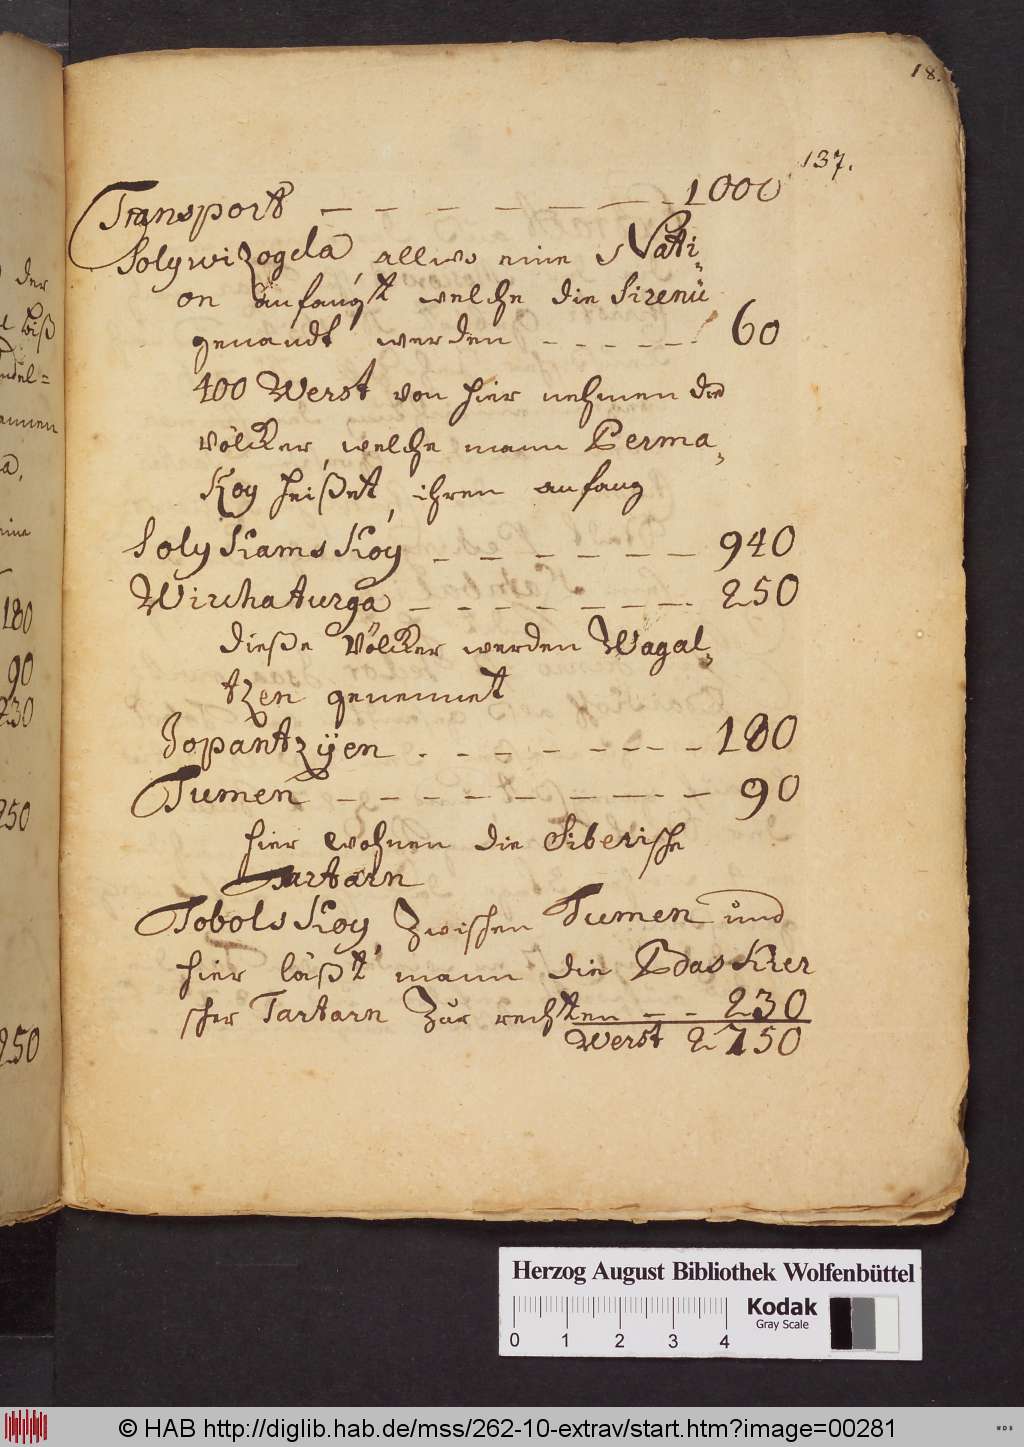 18.
137.
Transport 1000
Solywizogda, allwo eine Nati-
on anfängt welche die Sirenü
genandt werden 60
400 Werst von hier nehmen die
Völcker, welche mann Perma-
Koy heißet, ihren anfang
Soly Kams Koy 940
Wirchaturga 250
dieße Völcker werden Wagal-
tzen genennet
Japantzÿen 180
Tumen 90
hier wohnen die Siberische
Tartarn
Tobols Koy, zwischen Tumen und
hier läßt mann die
scher Tartarn Zur rechten 230
Werst 2750
der
biß
180
90
230
250
250
Herzog August Bibliothek Wolfenbüttel
Kodak
Gray Scale
0 1 2 3 4
© HAB http://diglib.hab.de/mss/262-10-extrav/start.htm?image=00281